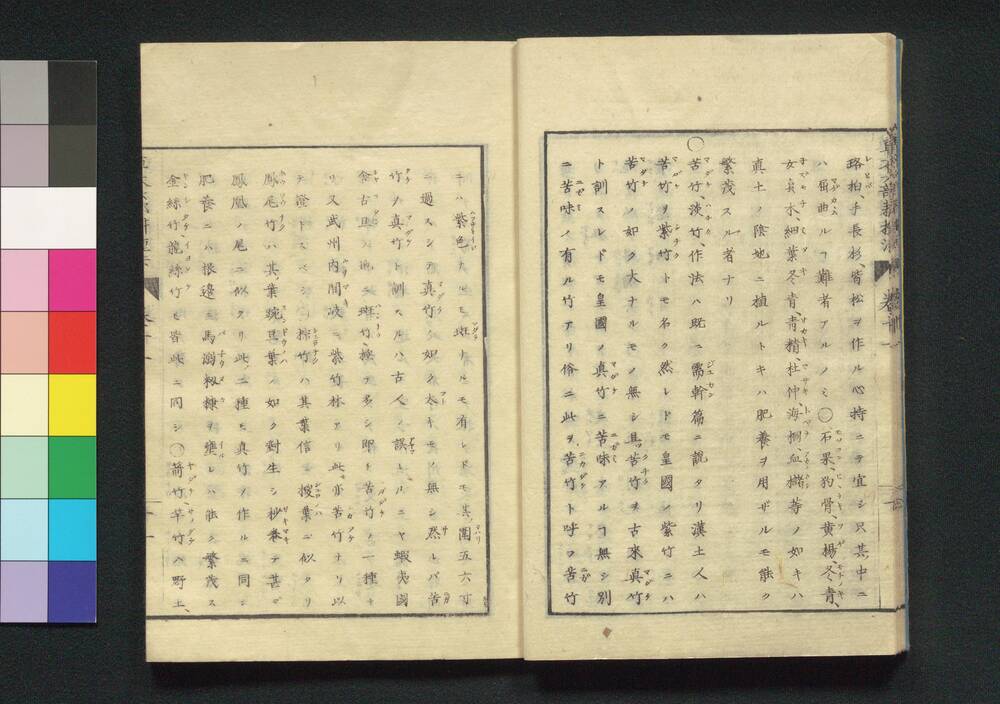 珞柏、手長杉、皆松ヲ作ル心持ニテ宜シ只其中ニ
ハ屈曲ルヿ難者アルノミ〇石果、狗骨、黄楊、冬青、
女貞木、細葉冬青、青精、杜仲、海桐、血櫧等ノ如キハ
真土ノ陰地ニ植ルトキハ肥養ヲ用ザルモ能ク
繁茂スル者ナリ
〇苦竹、淡竹、作法ハ既ニ需幹篇ニ説タリ漢土人ハ
苦竹ヲ紫竹トモ名ク然レドモ皇國ノ紫竹ニハ
苦竹ノ如ク大ナルモノ無シ其苦竹ヲ古来真竹
ト訓スレドモ皇國ノ真竹ニ苦味アルヿ無シ別
ニ苦味ノ有ル竹アリ俗ニ此ヲ苦竹ト呼フ苦竹
ニハ紫色ナルモ斑ナルモ有レドモ其圍五六寸
ニ過スシテ真竹ノ如ク太キモノ無シ然レバ苦
竹ヲ真竹ト訓スルハ古人ノ誤レルニヤ蝦夷國
ノ地ニ斑竹、極テ多シ即ト苦竹ノ一種ナ
リ又武州内間岐ニ紫竹林アリ此亦苦竹ナリ以
テ澄トスベシ棕竹ハ其葉信ニ椶葉ニ似タリ
鳳尾竹ハ其葉豌豆葉ノ如ク對生シ杪巻テ甚ダ
鳳凰ノ尾ニ似タリ此二種モ真竹ノ作ルニ同シ
肥養ニハ根邊ニ馬溺糠ヲ壅レハ能ク繁茂ス
金絲竹龍絲竹モ皆此ニ同シ〇箭竹、竿竹ハ野土、